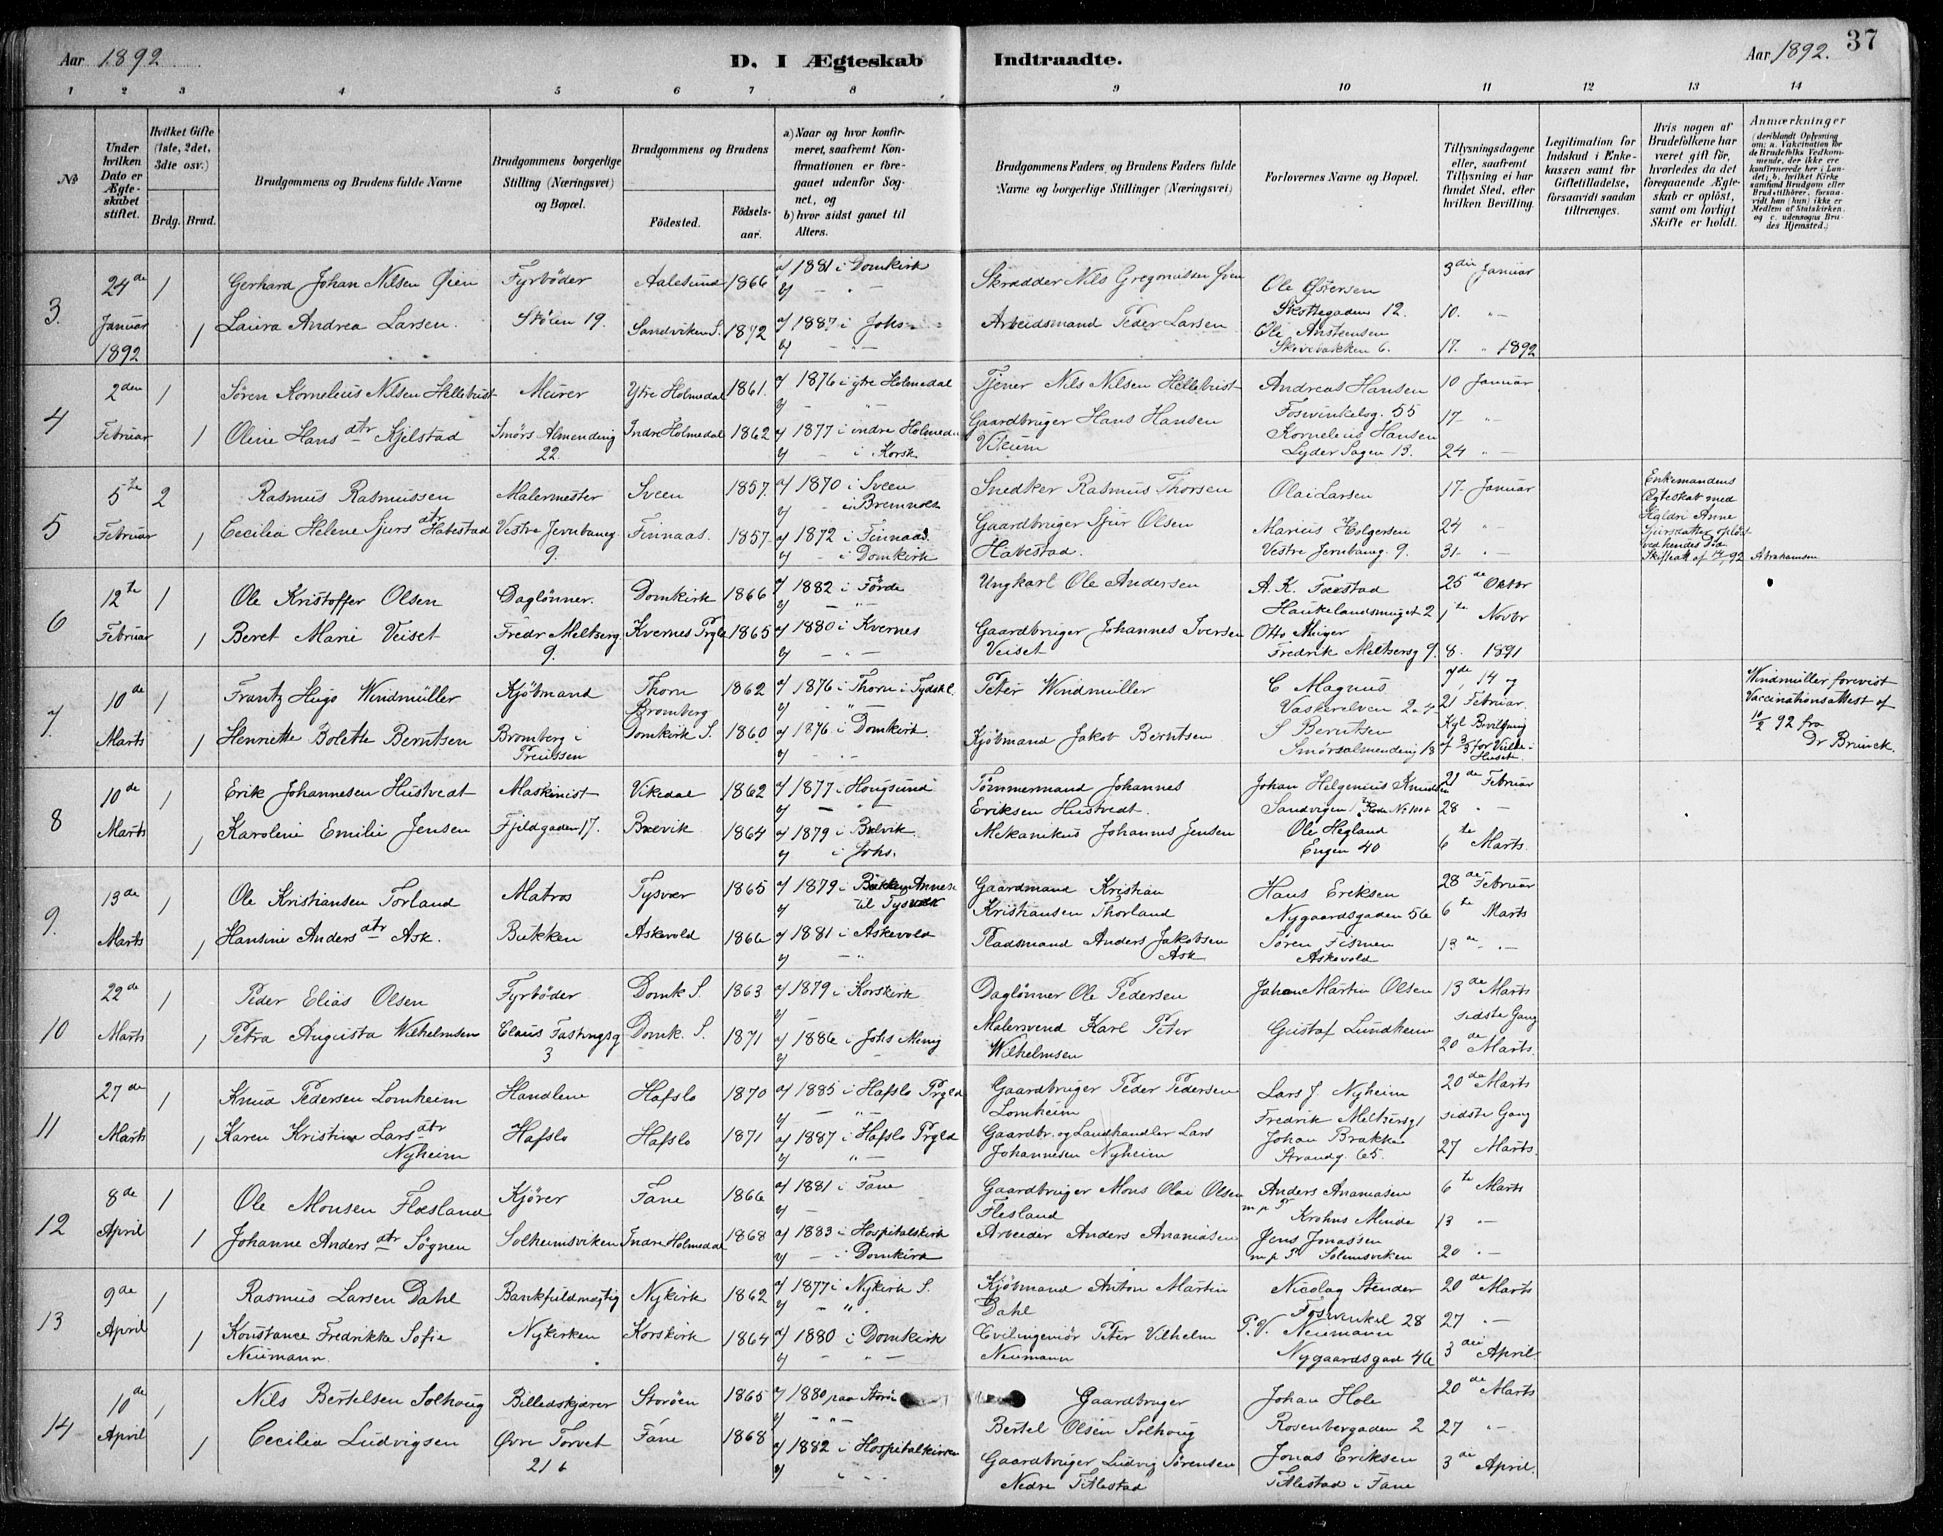 Aar 1892
D. I Ægteskab Indtraadte.
Aar 1892.
37
1 2 3 4 5 6 7 8 9 10 11 12 13 14
№
Under hvilken Dato er Ægteskabet stiftet.
Hvilket Gifte (1ste, 2det, 3die osv.)
Brdg. Brud.
Brudgommens og Brudens fulde Navne
Brudgommens borgerlige Stilling (Næringsvei) og Bopæl.
Brudgommens og Brudens
Födested. Födselsaar.
a) Naar og hvor konfirmeret, saafremt Konfirmationen er foregaaet udenfor Sognet, og
b) hvor sidst gaaet til Alters.
Brudgommens Faders og Brudens Faders fulde Navne og borgerlige Stillinger (Næringsvei)
Forlovernes Navne og Bopæl.
Tillysningsdagene eller, saafremt Tillysning ei har fundet Sted, efter hvilken Bevilling.
Legitimation for Indskud i Enkekassen samt for Giftetilladelse, forsaavidt saadan tiltrænges.
Hvis nogen af Brudefolkene har været gift för, hvorledes da det foregaaende Ægteskab er oplöst, samt om lovligt Skifte er holdt.
Anmærkninger
(deriblandt Oplysning om: a. Vaccination for de Brudefolks Vedkommende, der ikke ere konfirmerede her i Landet; b. hvilket Kirkesamfund Brudgom eller Brud tilhörer, forsaavidt han (hun) ikke er Medlem af Statskirken, og c. udensogns Brudes Hjemsted.)
3. 24de Januar 1892 1 Gerhard Johan Nilsen Öien Fyrböder Aalesund 1866 a) 1881 i Domkirk Skrædder Nils Gregoriussen Öien Ole 3die Januar
b) - " -
1 Laura Andrea Larsen. Skolen 19. Sandviken S. 1872 a) 1887 i Johs Arbeidsmand Peder Larsen Skottegaden 12. 10. " -
b) - " - Ole Anstensen
Skivebakken 6. 17. " 1892
4 2den Februar 1 Sören Kornelius Nilsen Hellebust Murer Ytre Holmedal 1861. a) 1876 i ytre Holmedal Tjener Nils Nilsen Hellebust Andreas Hansen 10 Januar
Fosvinkelsg. 55
1 Oline Hansdtr Kjelstad Smörs Almending 22. Indre Holmedal 1862 a) 1877 i indre Holmeda Gaardbruger Hans Hansen Kornelius Hansen 17- " -
b) - i Korsk Lyder Sagen 13. 24 " -
5 5te Februar 2 Rasmus Rasmussen Malermester Sveen 1857. a) 1870 i Sveen Snedker Rasmus Thorsen Olai Larsen 17- Januar
b) - i Bremnæs
1 Cecilia Helene Sjursdtr Habestad Vestre Jernbaneg 9. Finnaas. 1857. a) 1872 i Finnaas. Gaardbruger Sjur Olsen Habestad. Marius Holgersen 24 " -
b) - i Domkirk Vestre Jernbaneg. 9. 31. " -
Enkemandens Ægteskab med Anne Sjursdatter oplöst ved hendes Död. Skifteatt af 14/1 92 Abrahamsen
6 12te Februar 1 Ole Kristoffer Olsen Daglönner. Domkirk 1866 a) 1882 i Förde Ungkarl Ole Andersen A. K. Faxstad 25de Oktbr
Haukelandsmuget 2 1te Novbr
1 Beret Marie Veiset Fredr Meltzersg 9. Kvernes Prgld 1865 a) 1880 i Kvernes Gaardbruger Johannes Iversen Veiset Otto Meyer
Fredrik Meltsersg 9. 8. 1891
7. 10de Marts 1 Frantz Hugo Windmüller Kjöbmand Thorn Bromberg 1862 a) 1876 i Thorn i Tydskl. Peter Windmüller C. Magnus 7de, 14 og
Vaskerelven 21 Februar.
1 Henriette Bolette Berntsen Bromberg i Preussen Domkirk S. 1860 a) 1876 i Domkirk. Kjöbmand Jakob Berntsen S Berntsen Kgl Bevilling
Smörsalmending 13 af 3/3 for Vielse i Huset.
Windmüller forevist Vaccinationsattest af 10/2 92 fra Dr Brunck.
8 10de Marts 1 Erik Johannesen Hustvedt Maskinist Vikedal 1862 a) 1877 i Hougsund Tömmermand Johannes Eriksen Hustvedt. Johan Helgenius Knudsen 21de Februar
Sandvigen 28 " -
1 Karoline Emilie Jensen Fjeldgaden 17. Brevik 1864 a) 1879 i Brevik. Mekanikus Johannes Jensen Ole Hegland
b) i Johs. Engen 40 6te Marts.
9. 13de Marts 1 Ole Kristiansen Torland Matros Tysvær 1865 a) 1879 i Bukken Annex til Tysvær Gaardmand Kristian Kristiansen Thorland Hans Eriksen 28de Februar
Nygaardsgaden 56 6te Marts
1 Hansine Andersdtr Ask. Bukken Askevold 1866 a) 1881 i Askevold Pladsmand Anders Jakobsen Ask Sören Fismen 13de " -
Askevold
10 22de Marts 1 Peder Elias Olsen Fyrböder Domk S. 1863 a) 1879 i Korskirk Daglönner Ole Pedersen Johan Martin Olsen 13de Marts
1 Petra Augusta Wilhelmsen Claus Fastingsg 3 Domk. S. 1871 a) 1886 i Johs Menig Malersvend Karl Peter Wilhelmsen Gustaf Lundheim sidste Gang
20de Marts.
11 27de Marts 1 Knud Pedersen Lomheim Handlene Hafslo 1870 a) 1885 i Hafslo Prgld Gaardbruger Peder Pedersen Lomheim Lars J. Nyheim 20de Marts
Fredrik Meltsersg 1 sidste Gang
1 Karen Kristine Larsdtr Nyheim Hafslo Hafslo 1871 a) 1887 i Hafslo Prgld Gaardbr. og Landhandler Lars Johannesen Nyheim Johan Brakke
Strandg. 65. 27 Marts.
12 8de April 1 Ole Monsen Flæsland Kjörer Fane 1866 a) 1881 i Fane Gaardbruger Mons Olai Olsen Flesland Anders Ananiasen 6te Marts
m p P Krohns Minde 13 " -
1 Johanne Andersdtr Sögnen Solheimsviken Indre Holmedal 1868 a) 1883 i Hospitalskirk Arbeider Anders Ananiasen Jens Jonassen
b) - i Domkirk m p P Solemsviken 20 " -
13 9de April 1 Rasmus Larsen Dahl Bankfuldmægtig Nykirk 1862 a) 1877 i Nykirk S. Kjöbmand Anton Martin Dahl Nicolay Stender 20de Marts
Fosvinkel 28 27 " -
1 Konstance Fredrikke Sofie Neumann. Nykirken Korskirk 1864 a) 1880 i Domkirk Civilingeniör Peter Vilhelm Neumann P. V. Neumann
Nygaardsgad 46 3die April
14 10de April 1 Nils Bertelsen Solhoug Billedskjærer Storöen 1865 a) 1880 paa Storö Gaardbruger Bertel Olsen Solhoug Johan Hole 20de Marts
Rosenbergaden 2 27 " -
1 Cecilia Ludvigsen Övre Torvet 21 b Fane 1868 a) 1882 i Hospitalkirken Gaardbruger Ludvig Sörensen Nedre Titlestad Jonas Eriksen 3die April.
Titlestad i Fane